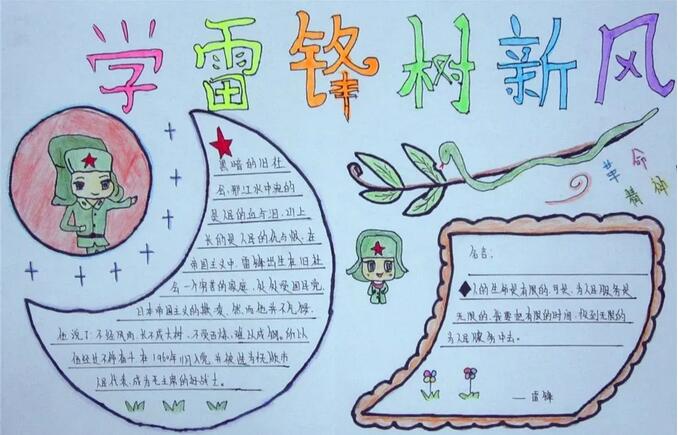 学雷锋树新风
黑暗的旧社
会,那江水中流的
是人民的血与泪,山上
长的是人民的仇与恨,在
帝国主义中,雷锋出生在旧社
会一个穷苦的家庭,处处受国民党,
日本帝国主义的欺负,然而他并不气馁,
他说了:不经风雨,长不成大树,不受百炼,难以成钢。所以
他经过不停奋斗在1960年11月入党,并被选为抚顺市
人民代表,成为毛主席的好战士。
革命
精神
名言:
人的生命是有限的,可是,为人民服务是
无限的,我要把有限的时间,投到无限的
为人民服务中去。
——雷锋